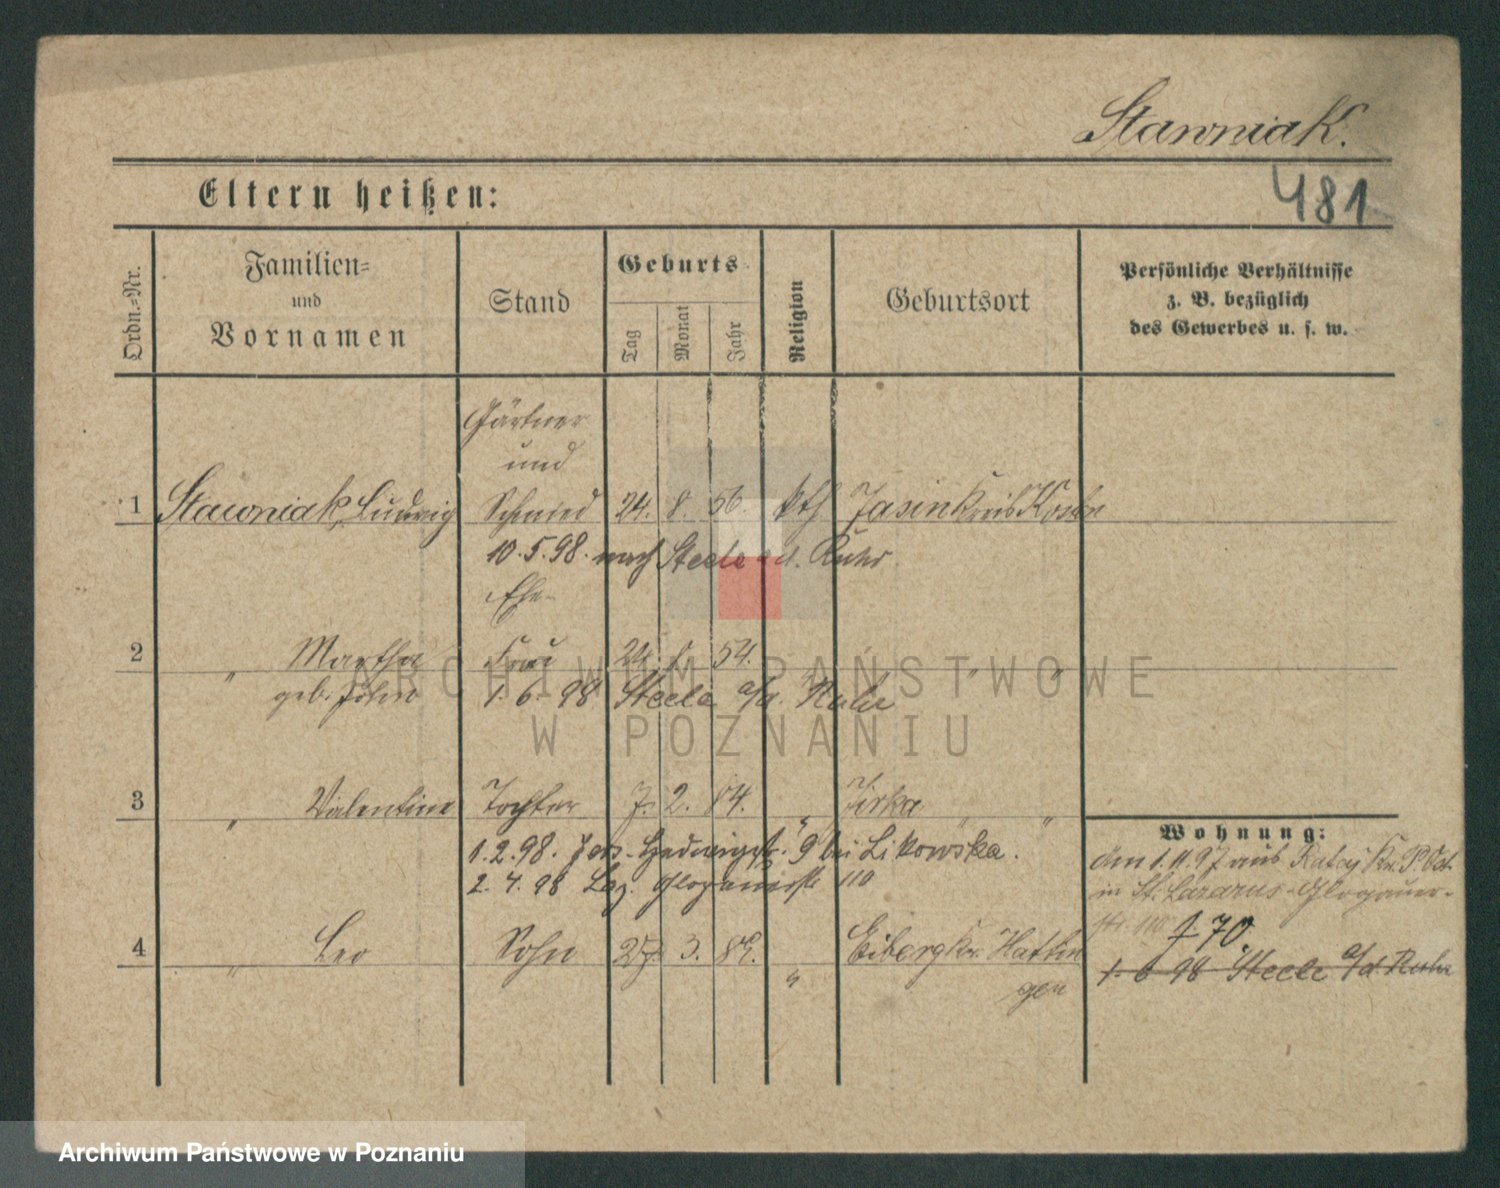 Stawniak.
Eltern heißen:
481
Ordn.-Nr.
Familien-
und
Vornamen
Stand
Geburts-
Tag
Monat
Jahr
Religion
Geburtsort
Persönliche Verhältnisse
z. B. bezüglich
des Gewerbes u. s. w.
Gärtner
und
1 Stawniak, Ludwig Schmied 24. 8. 56. kth Jasin Kreis
10.5.98. nach Steele a.d. Ruhr
Ehe-
2 " Martha Frau 54. " "
geb. 1. 6. 98 Steele a/d. Ruhr
ARCHIWUM PAŃSTWOWE
W POZNANIU
3 " Valentine Tochter 7. 2. 84. " " "
Wohnung:
1.2.98. Jers. Hedwigstr. 9 bei Likowska.
2. 4. 98 Laz. Glogauerstr 110
am 1.11.97 aus Rataj Kr. P. Ost
in St. Lazarus-Glogauer-
str. 110 f 70
4 " Leo Sohn 3. " Eiberg Kr. Hattin
gen
1. 6 98 Steele a/d Ruhr
Archiwum Państwowe w Poznaniu